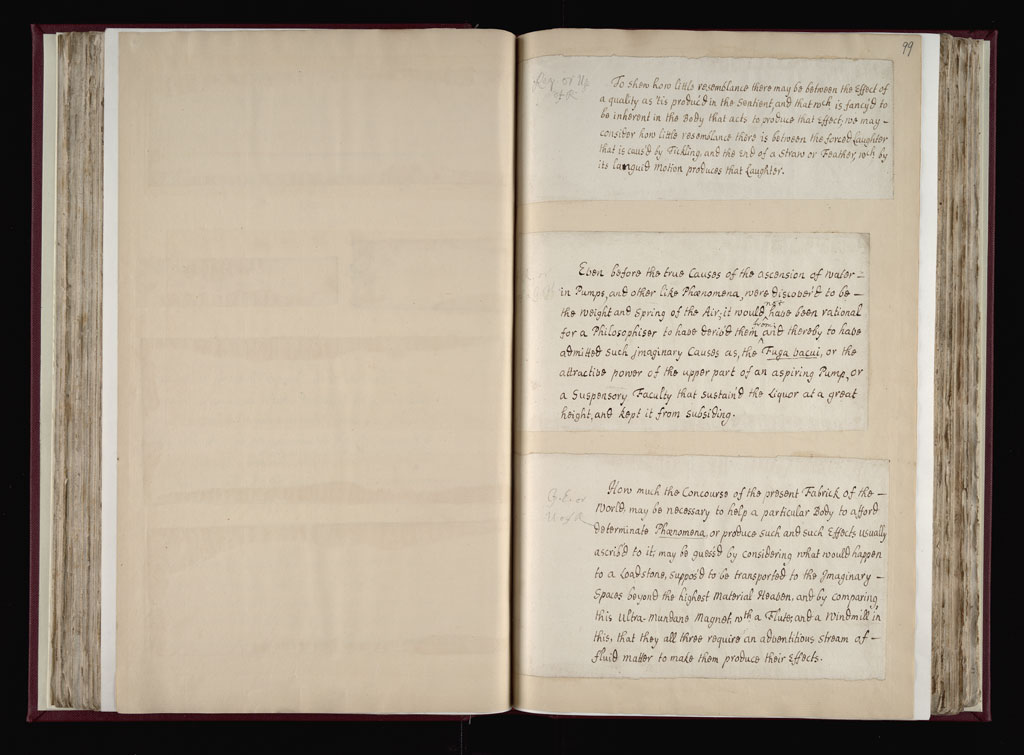 99
To shew how little resemblance there may be between the Effect of
a quality as 'tis produc'd in the Sentient, and that wch is fancy'd to
be inherent in the Body that acts to produce that Effect; we may -
consider how little resemblance there is between the forced Laughter
that is caus'd by Tickling, and the End of a Straw or Feather, wch by
its languid Motion produces that Laughter.
Even before the true Causes of the ascension of water -
in Pumps, and other like Phænomena, were discover'd to be -
the weight and Spring of the Air; it would not have been rational
for a Philosophiser to have deriv'd them from and thereby to have
admitted such jmaginary Causes as, the Fuga vacui, or the
attractive power of the upper part of an aspiring Pump, or
a Suspensory Faculty that sustain'd the Liquor at a great
height, and kept it from subsiding.
How much the Concourse of the present Fabrick of the -
World may be necessary to help a particular Body to afford
determinate Phænomena, or produce such and such Effects usually
ascrib'd to it; may be guess'd by considering what would happen
to a Loadstone, suppos'd to be transported to the Jmaginary -
Spaces beyond the highest Material Heaven, and by comparing
this Ultra-mundane Magnet, wth a Flute; and a Windmill in
this, that they all three require an adventitious stream of -
fluid matter to make them produce their Effects.